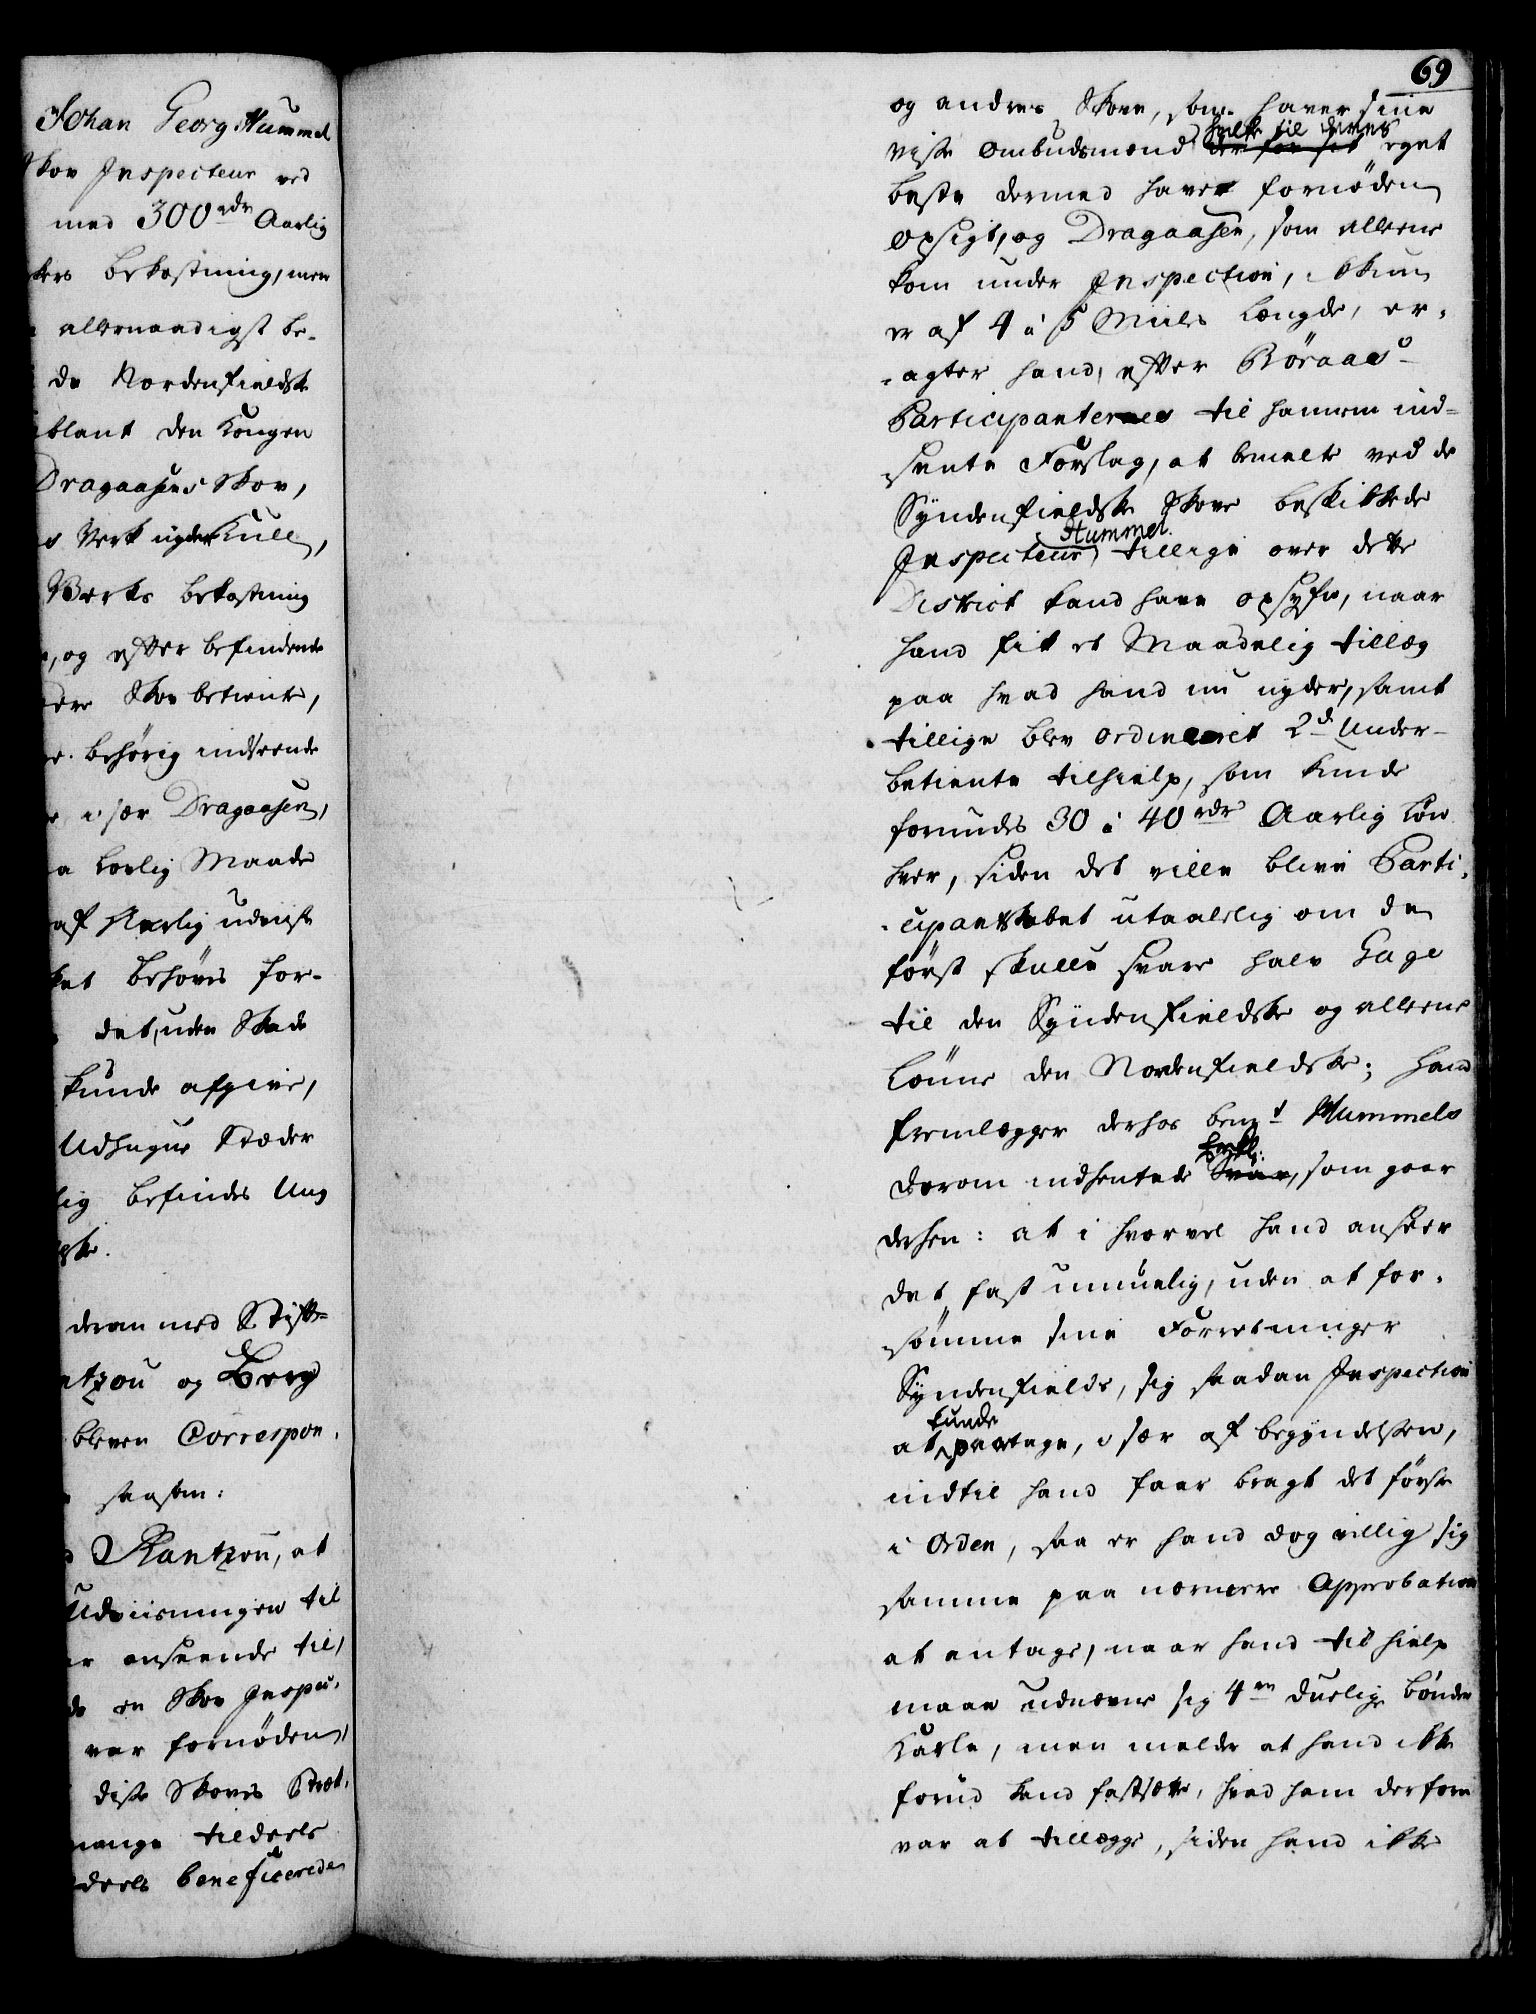 Johan Georg Hummel
Skov Inspecteur ved
med 300 rdr Aarlig
bekostning, men
allernaadigst be-
de Nordenfieldske
iblant den Kongen
Dragaasens Skov,
Verk nyder Kull,
Verks bekostning
, og efter befindende
Skov betiente,
behörig indseende
i sær Dragaasen,
Lovlig Maade
af Aarlig udviist
behöves for-
det, uden Skade
kunde afgive,
Udhugne Stæder
befindes Ung

derom med Stift-
og Berg
bleven Correspon-
saasom:
Rantzou, at
Udviisningen til
anseende til,
en Skov Inspec-
var fornöden,
disse Skoves Stræk-
mange tildeels
deels beneficerede
69
og andres Skove, som haver sine
visse Ombudsmænd hvilke til deres der for sit eget
beste dermed haver fornöden
opsigt, og Dragaasen, som alleene
kom under Inspection, ikkun
er af 4 à 5 Miiles Længde, er-
agter hand, efter Röraas-
Participanternes til hannem ind-
sente Forslag, at bemelte ved de
Syndenfieldske Skove beskikkede
Inspecteur Hummel tillige over dette
District kand have opsyn, naar
hand fik et Maadelig tillæg
paa hvad hand nu nyder, samt
tillige blev ordineret 2de Under-
betiente tilhielp, som kunde
forundes 30 à 40 rdr Aarlig Løn
hver, siden det ville blive Parti-
cipantskabet utaalelig om de
först skulle svare halv Gage
til den Syndenfieldske og alleene
Lönne den Nordenfieldske; Hand
fremlægger derhos bemte Hummels
derom indhentede Erkl: Svar, som gaar
derhen: at i hvorvel hand anseer
det fast umuelig, uden at for-
sömme sine Forretninger
Syndenfields, sig saadan Inspection
at kunde paatage, i sær af begyndelsen,
indtil hand faar bragt det første
i Orden, saa er hand dog villig sig
samme paa nærmere Approbation
at antage, naar hand til hielp
maae udnævne sig 4re duelige bönder
Karle, men melder at hand ikke
forud kand fastsætte, hvad ham derfore
var at tillægge, siden hand ikke